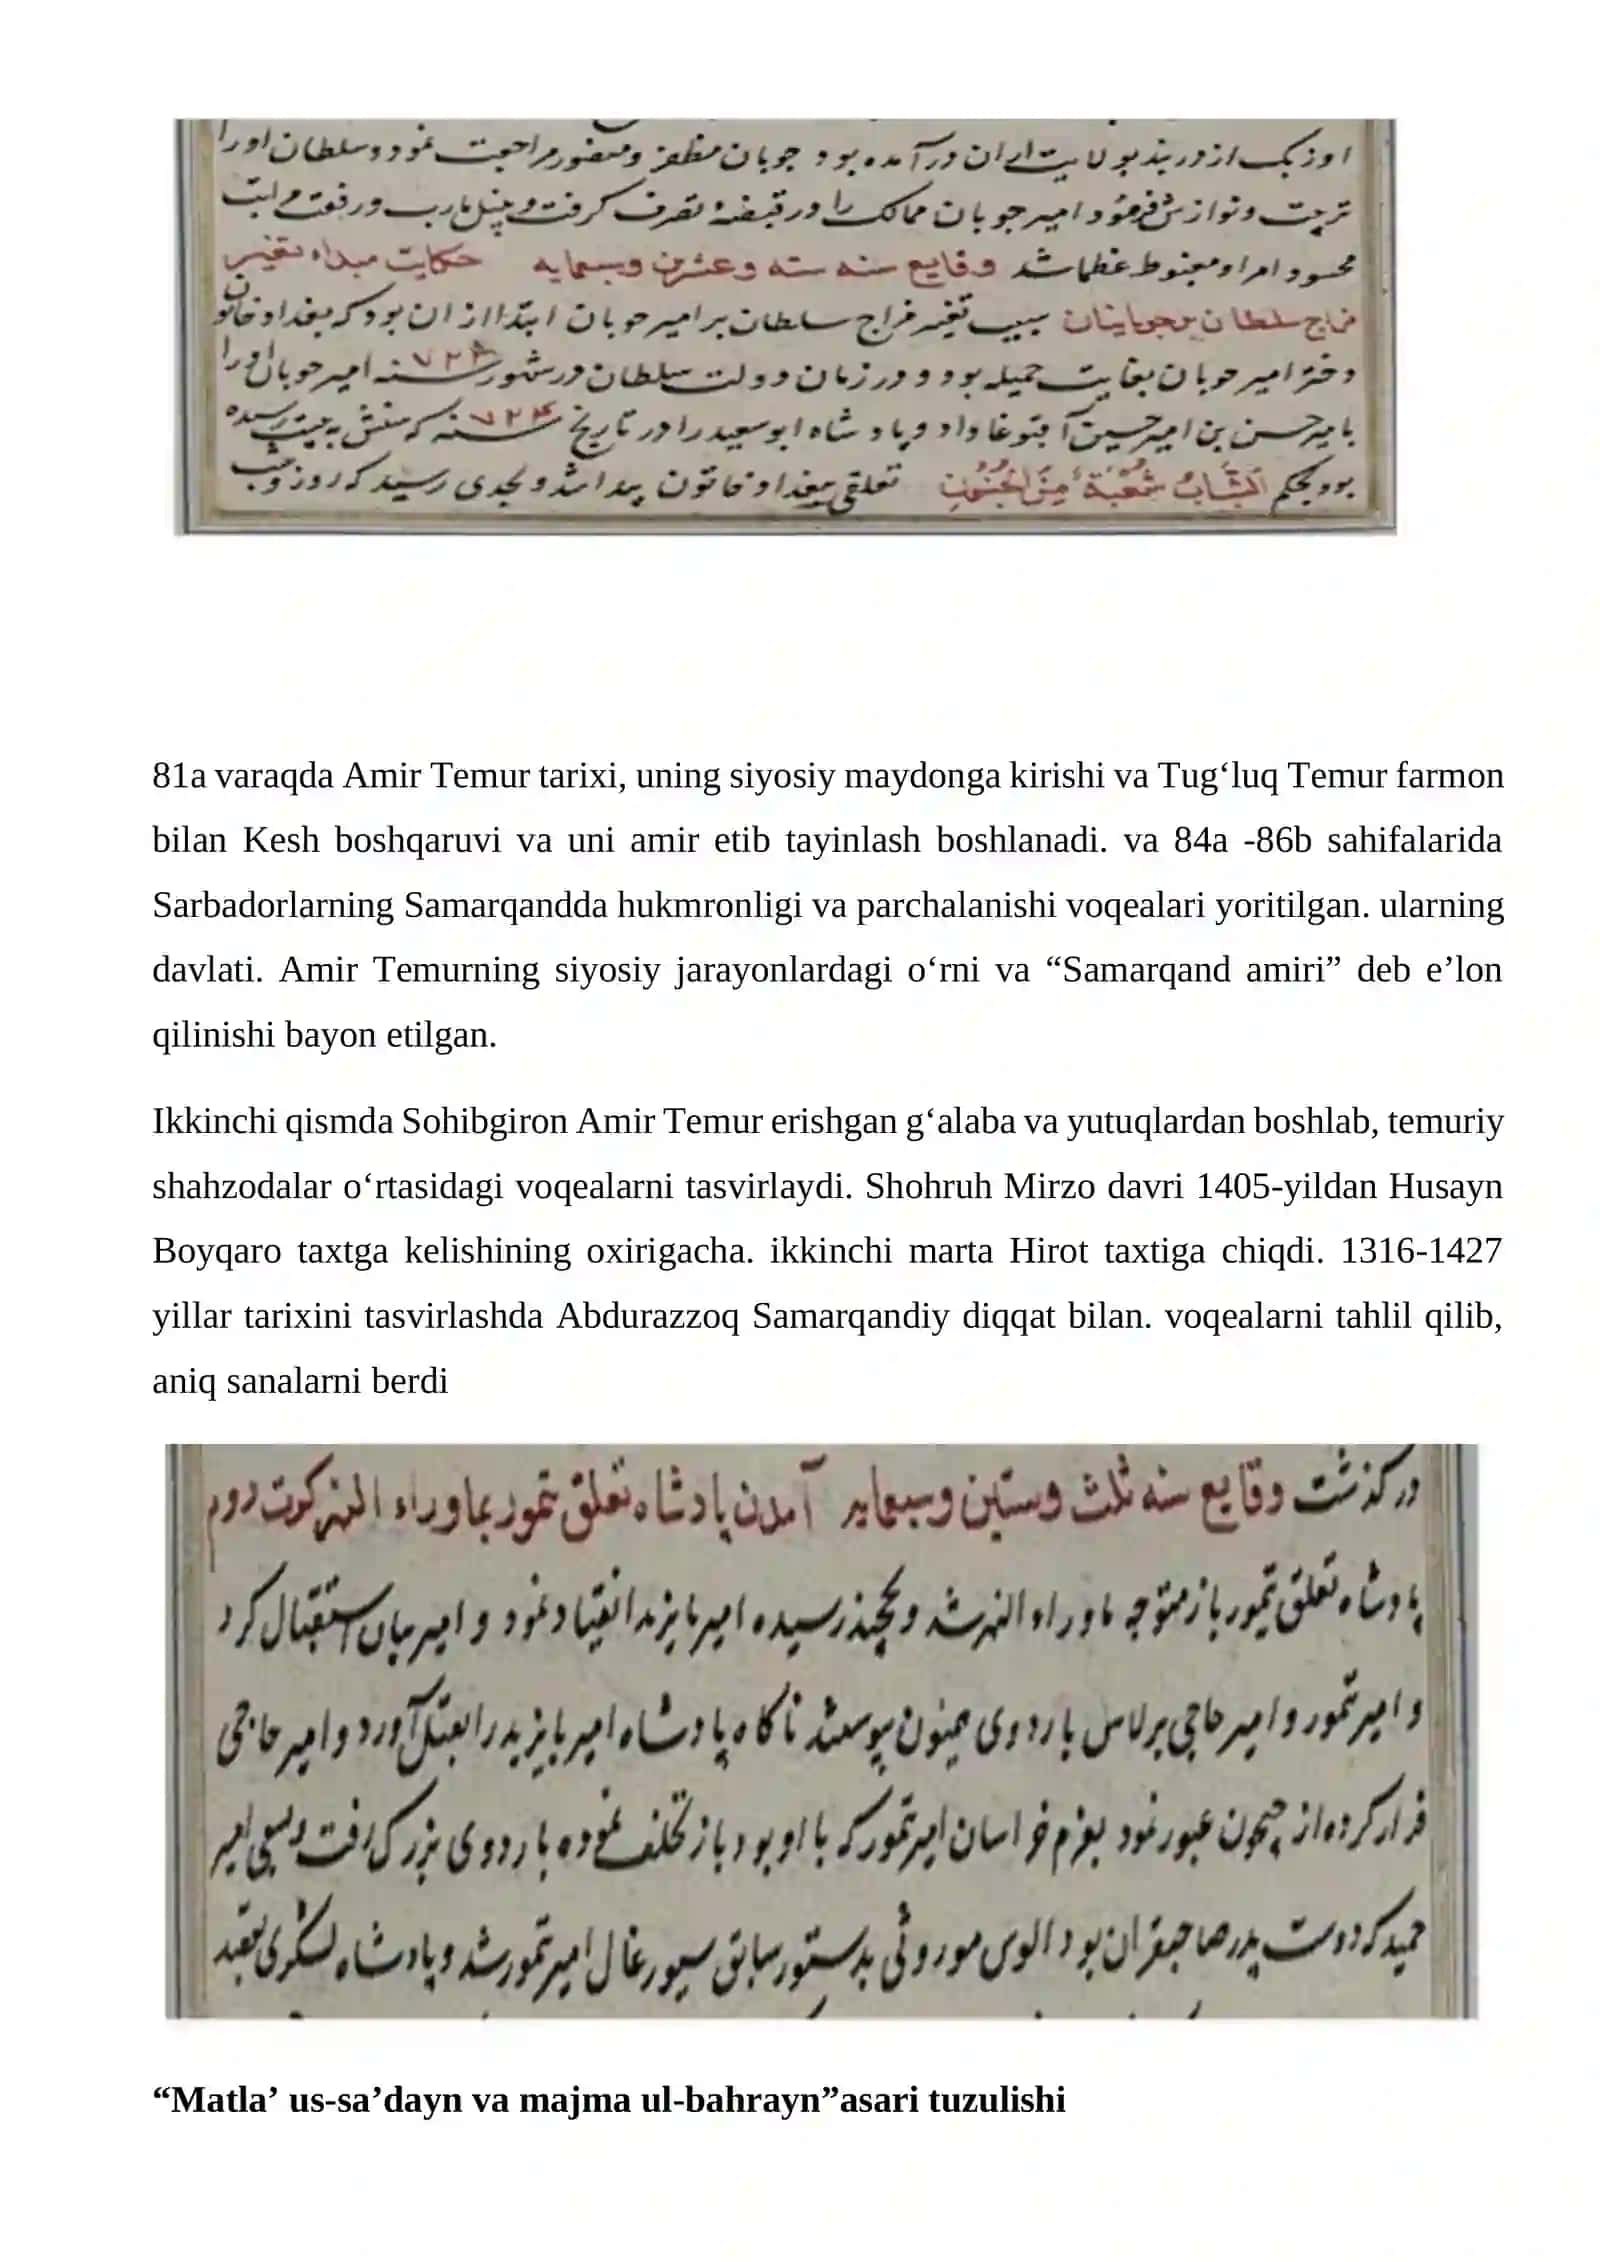 اوزبک از دربند بولایت ایران درآمده بود جوبان مظفر و منصور مراجعت نمود و سلطان اورا
تربیت و نوازش فرمود امیر جوبان ممالک را در قبضهٔ تصرف گرفت و
محسود امرا و مغبوط عظما شد وقایع سنه سته و عشرین و سبعمایه حکایت مبداء تغییر
مزاج سلطان بر جوبانیان سبب تغییر مزاج سلطان بر امیر جوبان ابتدا از ان بود که بغداد خاتون
دختر امیر جوبان بغایت جمیله بود و در زمان دولت سلطان در شهور سنه امیر جوبان اورا
با میر حسن بن امیر حسین داد و پادشاه ابوسعید را در تاریخ سنه که سنش به بیست رسیده
بود بحکم اَلشَّبابُ شُعْبَةٌ مِنَ الجُنُونِ تعلقی ببغداد خاتون پیدا شد و بحدی رسید که روز و شب
81a varaqda Amir Temur tarixi, uning siyosiy maydonga kirishi va Tug‘luq Temur farmon
bilan Kesh boshqaruvi va uni amir etib tayinlash boshlanadi. va 84a -86b sahifalarida
Sarbadorlarning Samarqandda hukmronligi va parchalanishi voqealari yoritilgan. ularning
davlati. Amir Temurning siyosiy jarayonlardagi o‘rni va “Samarqand amiri” deb e’lon
qilinishi bayon etilgan.
Ikkinchi qismda Sohibgiron Amir Temur erishgan g‘alaba va yutuqlardan boshlab, temuriy
shahzodalar o‘rtasidagi voqealarni tasvirlaydi. Shohruh Mirzo davri 1405-yildan Husayn
Boyqaro taxtga kelishining oxirigacha. ikkinchi marta Hirot taxtiga chiqdi. 1316-1427
yillar tarixini tasvirlashda Abdurazzoq Samarqandiy diqqat bilan. voqealarni tahlil qilib,
aniq sanalarni berdi
درگذشت وقایع سنه ثلث وستین وسبعمایه آمدن پادشاه تغلق تیمور بماوراء النهر کرت دوم
پادشاه تغلق تیمور باز متوجه ماوراء النهر شد و بخجند رسیده امیر بایزید انقیاد نمود و امیر بیان استقبال کرد
و امیر تیمور و امیر حاجی برلاس باردوی همیون پیوستند ناکاه پادشاه امیر بایزید را بقتل آورد و امیر حاجی
فرار کرده از جیحون عبور نمود بعزم خراسان امیر تیمور که با او بود باز تخلف نموده باردوی بزرک رفت و بسعی امیر
حمید که دوست پدر صاحبقران بود الوس موروثی بدستور سابق سیورغال امیر تیمور شد و پادشاه لشکری بقصد
“Matla’ us-sa’dayn va majma ul-bahrayn”asari tuzulishi